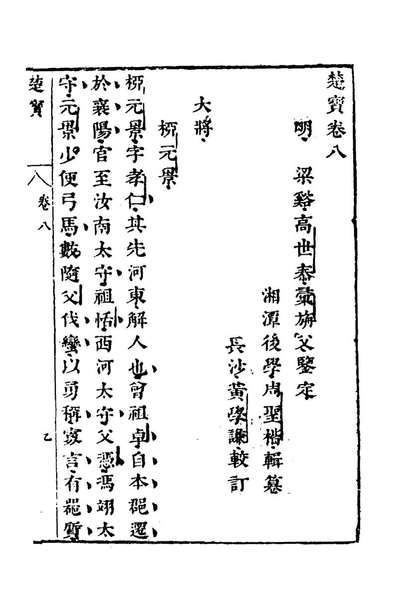 楚寶卷八
明 梁谿高世泰彙旃父鑒定
湘潭後學周聖楷輯纂
長沙黃學謙較訂
大將
柳元景
柳元景字孝仁其先河東解人也曾祖卓自本郡遷
於襄陽官至汝南太守祖恬西河太守父憑馮翊太
守元景少便弓馬數隨父伐蠻以勇稱寡言有器質
楚寶
卷八
乙